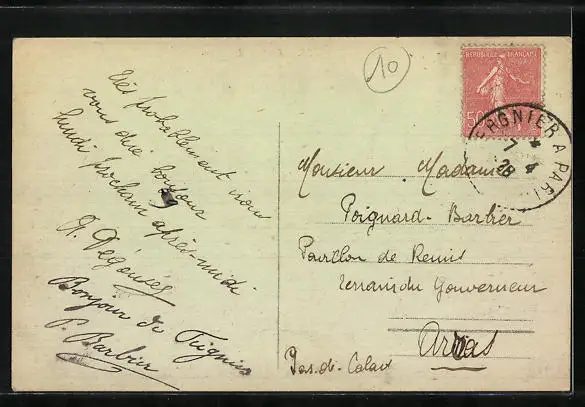 très probablement nous
vous dire bonjour
lundi prochain après-midi
Bonjour de Tergnier
P. Barbier
10
REPUBLIQUE FRANÇAISE
50
ERGNIER A PARI
7 4
28
Monsieur Madame
Poignard-Barbier
Pavillon de Remis
Terrain du Gouverneur
Arras
Pas-de-Calais